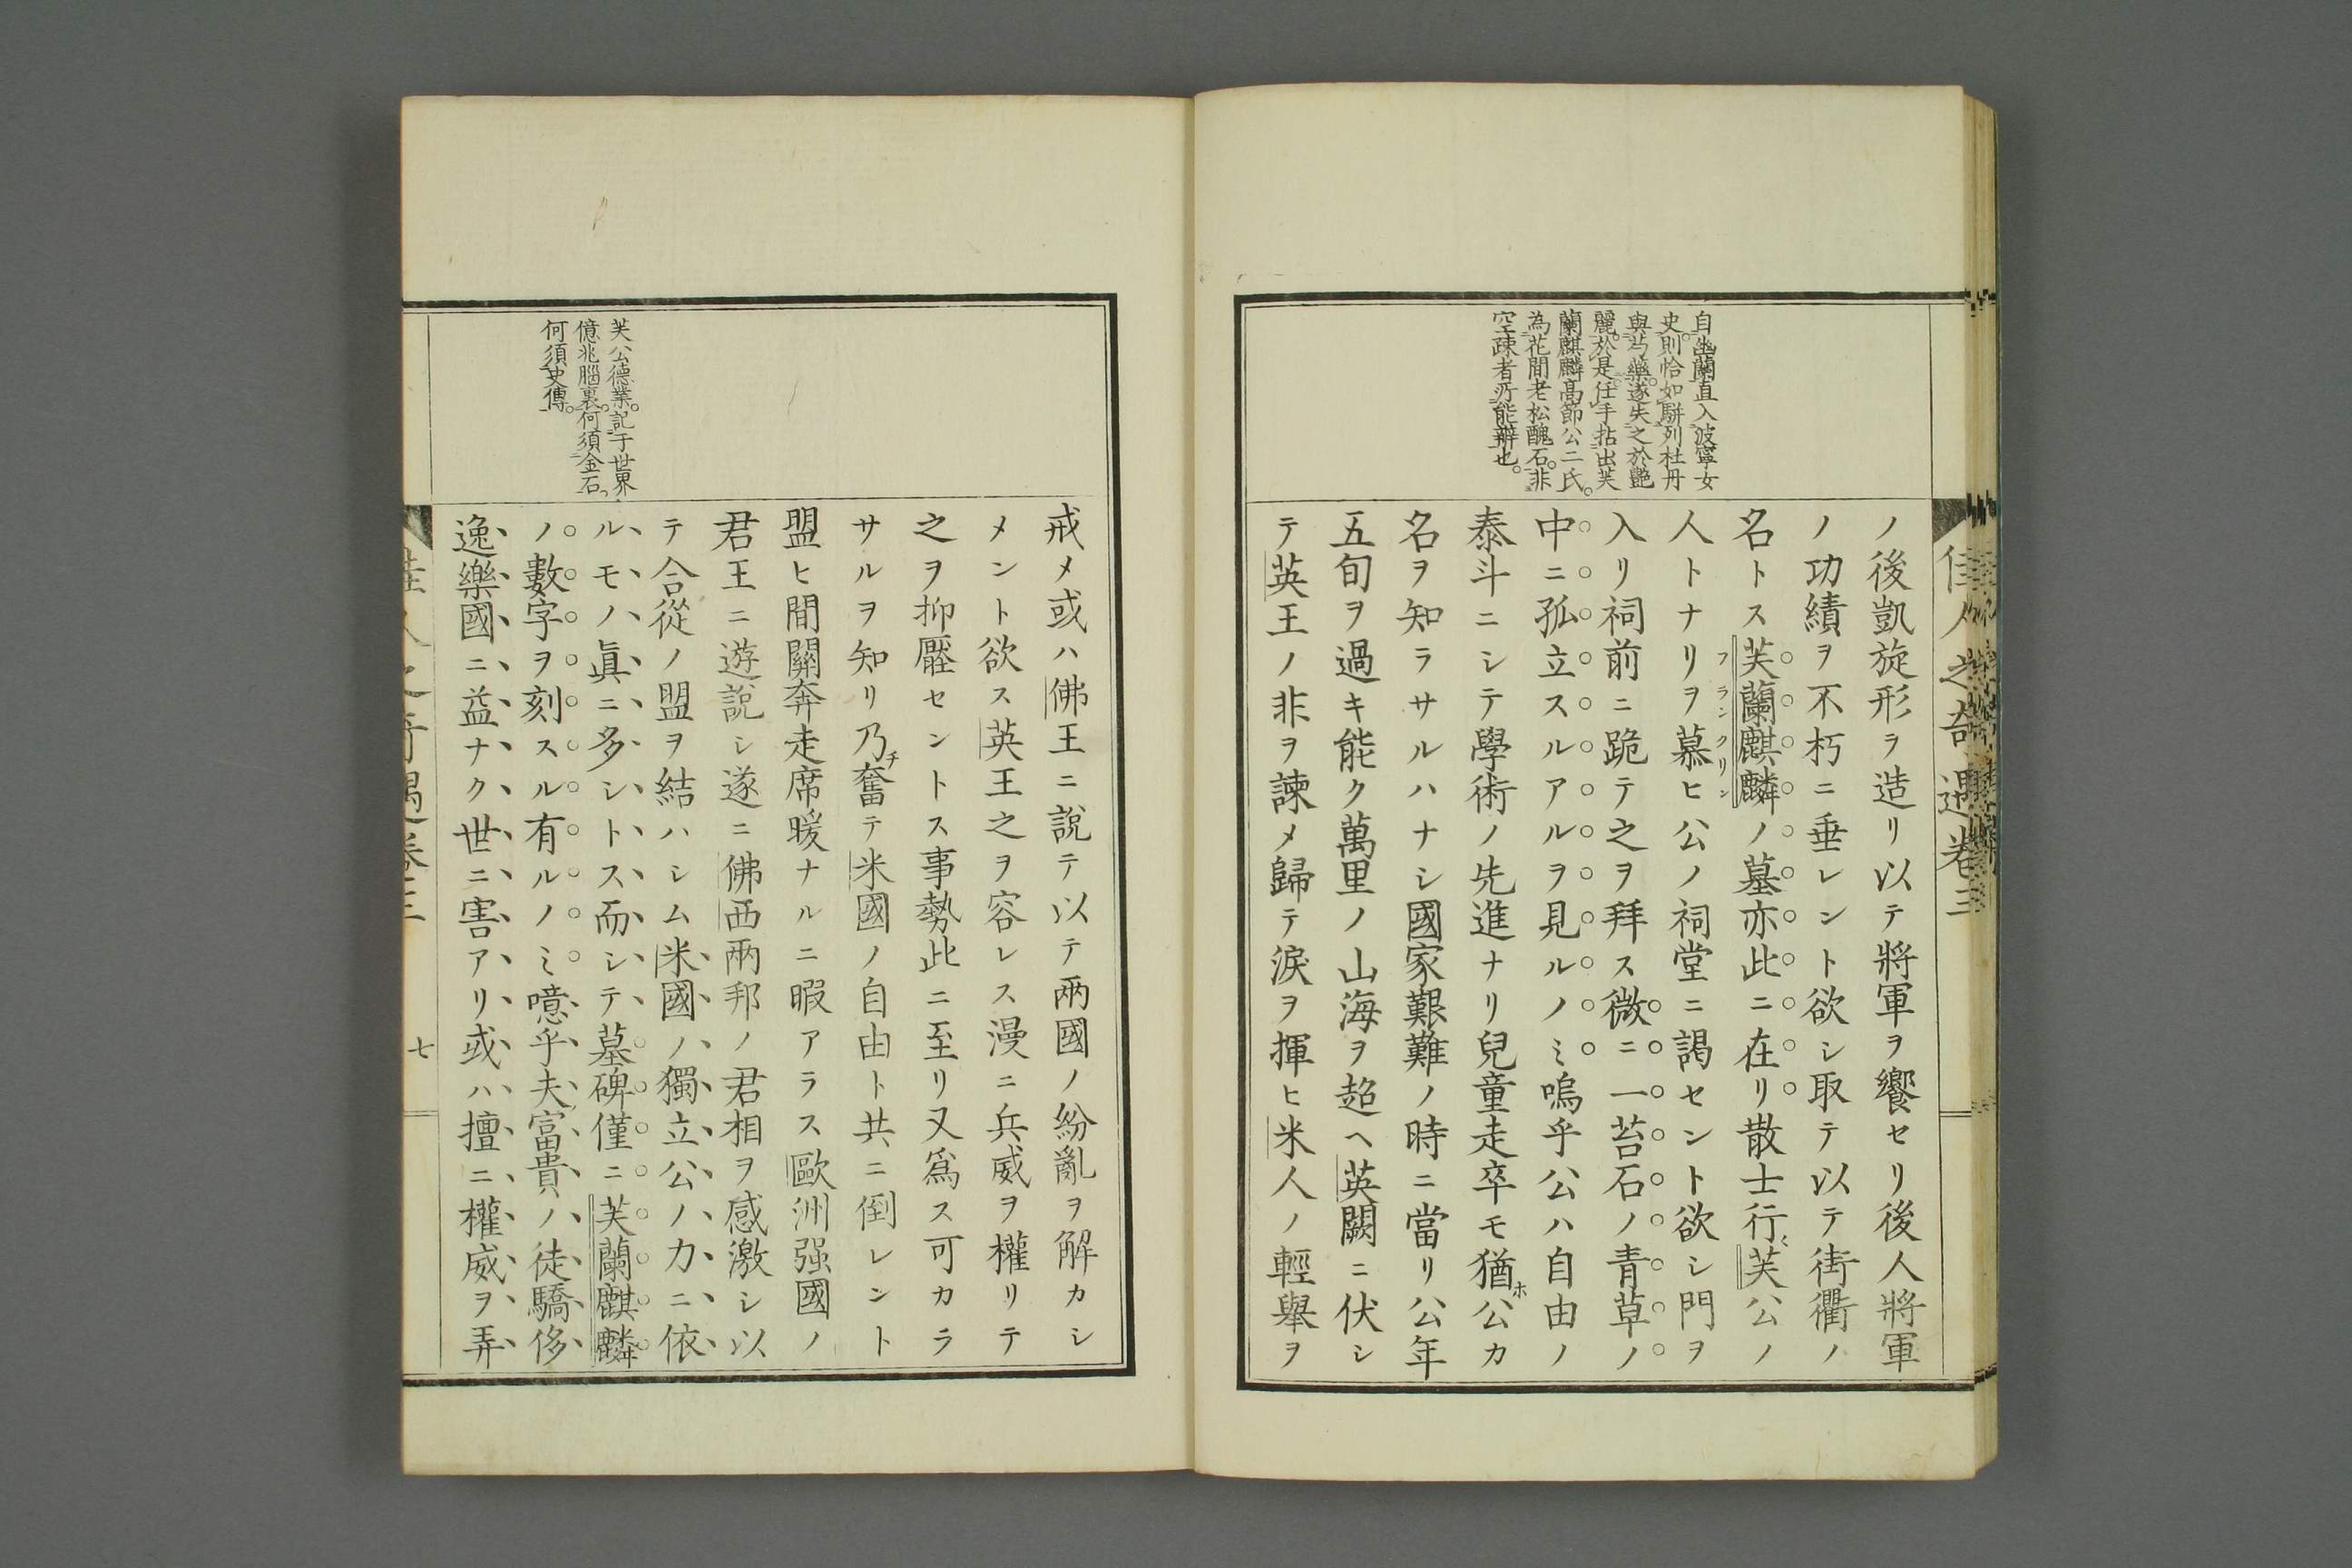 佳人之奇遇卷三
自幽蘭直入波寧女
史則恰如駢列杜丹
與芍藥遂失之於艷
麗於是任手拈出芙
蘭麒麟高節公二氏
為花間老松醜石非
空疎者乃能辨也
ノ後凱旋形ヲ造リ以テ將軍ヲ饗セリ後人將軍
ノ功績ヲ不朽ニ垂レント欲シ取テ以テ街衢ノ
名トス芙蘭麒麟ノ墓亦此ニ在リ散士行〻芙公ノ
フランクリン
人トナリヲ慕ヒ公ノ祠堂ニ謁セント欲シ門ヲ
入リ祠前ニ跪テ之ヲ拜ス微ニ一苔石ノ青草ノ
中ニ孤立スルアルヲ見ルノミ嗚乎公ハ自由ノ
泰斗ニシテ學術ノ先進ナリ兒童走卒モ猶ホ公カ
名ヲ知ラサルハナシ國家艱難ノ時ニ當リ公年
五旬ヲ過キ能ク萬里ノ山海ヲ超ヘ英闕ニ伏シ
テ英王ノ非ヲ諫メ歸テ淚ヲ揮ヒ米人ノ輕舉ヲ
芙公德業記于世界
億兆腦裏何須金石
何須史傳
戒メ或ハ佛王ニ說テ以テ兩國ノ紛亂ヲ解カシ
メント欲ス英王之ヲ容レス漫ニ兵威ヲ權リテ
之ヲ抑壓セントス事勢此ニ至リ又爲ス可カラ
サルヲ知リ乃チ奮テ米國ノ自由ト共ニ倒レント
盟ヒ間關奔走席暖ナルニ暇アラス歐洲强國ノ
君王ニ遊說シ遂ニ佛西兩邦ノ君相ヲ感激シ以
テ合從ノ盟ヲ結ハシム米國ノ獨立公ノ力ニ依
ルモノ眞ニ多シトス而シテ墓碑僅ニ芙蘭麒麟
ノ數字ヲ刻スル有ルノミ噫乎夫富貴ノ徒驕侈
逸樂國ニ益ナク世ニ害アリ或ハ擅ニ權威ヲ弄
佳人之奇遇卷三
七